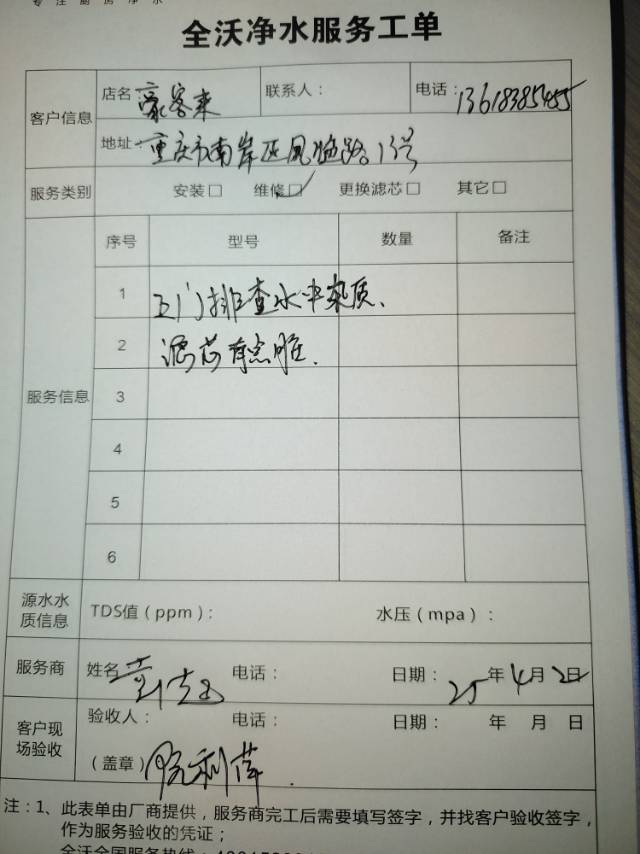 专注厨房净水
全沃净水服务工单
客户信息
店名 豪客来 联系人： 电话：13618385455
地址：重庆市南岸区 路13号
服务类别 安装□ 维修□✓ 更换滤芯□ 其它□
服务信息
序号 型号 数量 备注
1 上门排查水中杂质、
2 滤芯有点脏.
3
4
5
6
源水水质信息 TDS值（ppm）： 水压（mpa）：
服务商 姓名 电话： 日期： 25年4月2日
客户现场验收 验收人： 电话： 日期： 年 月 日
（盖章） 利萍
注：1、此表单由厂商提供，服务商完工后需要填写签字，并找客户验收签字，
作为服务验收的凭证；
全沃全国服务热线：